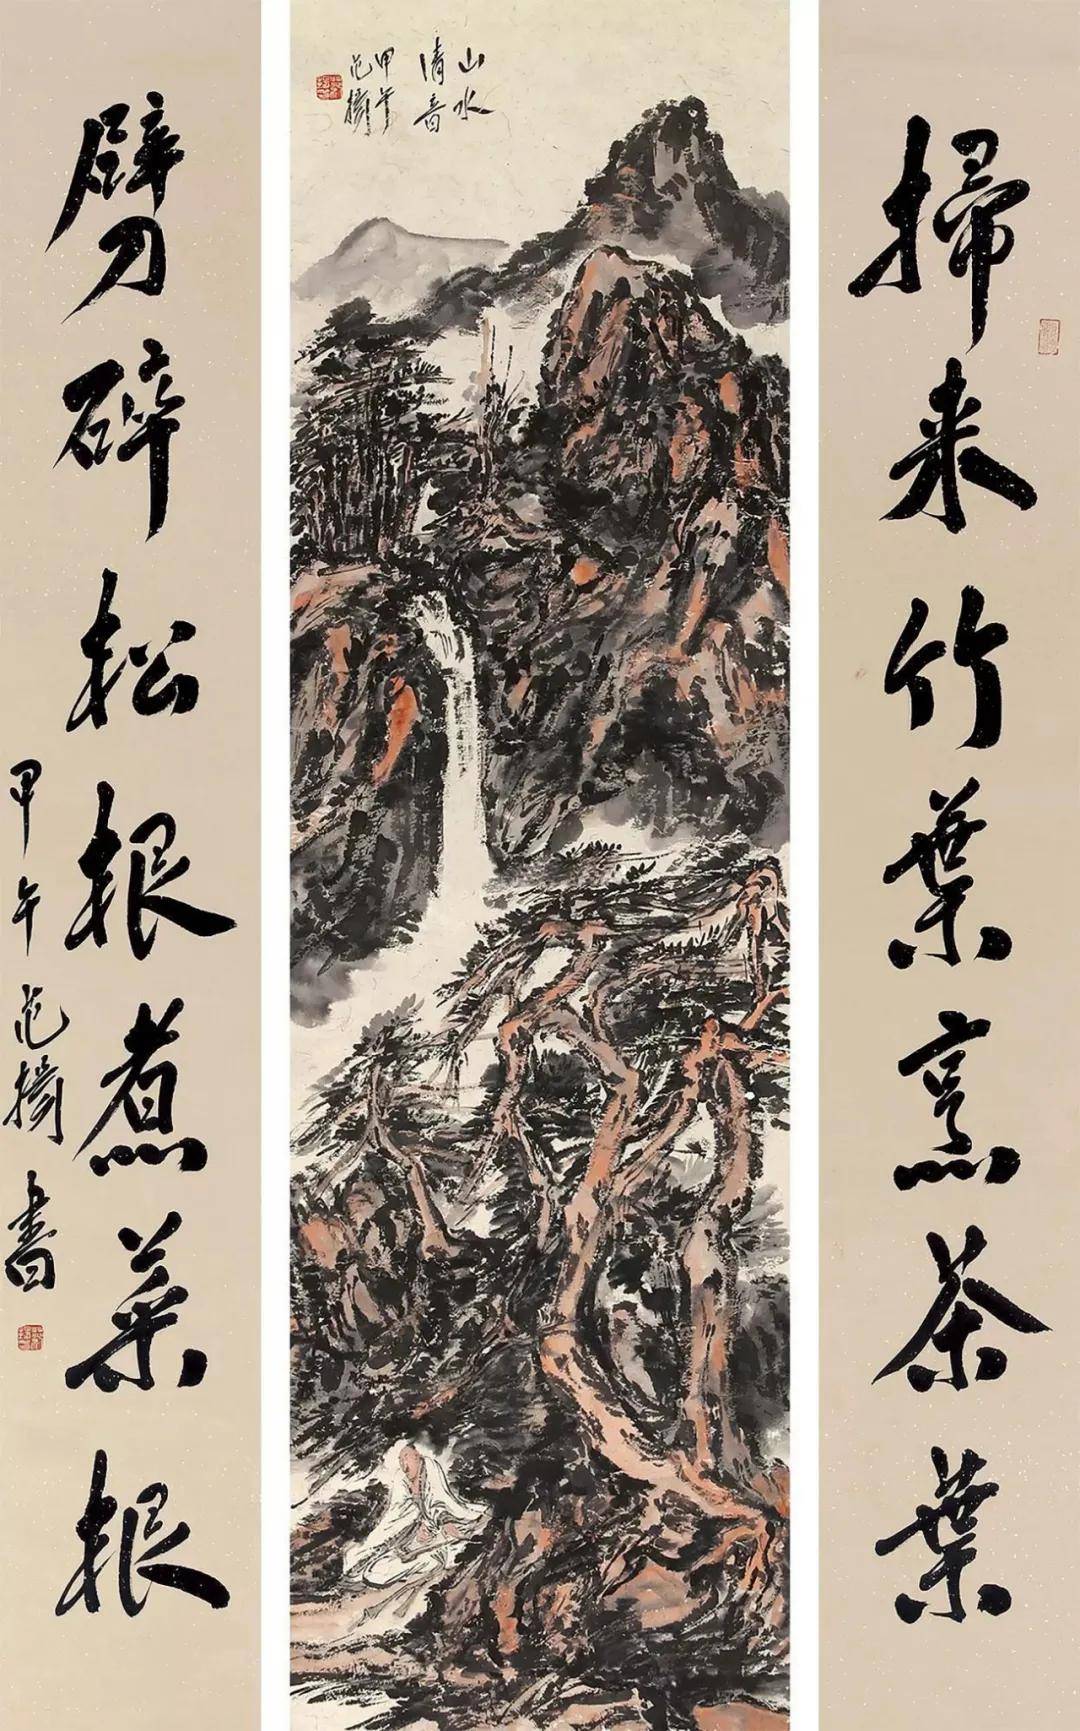 掃来竹葉烹茶葉
山水
清音
甲午
范揚
劈碎松根煮菜根
甲午范揚書